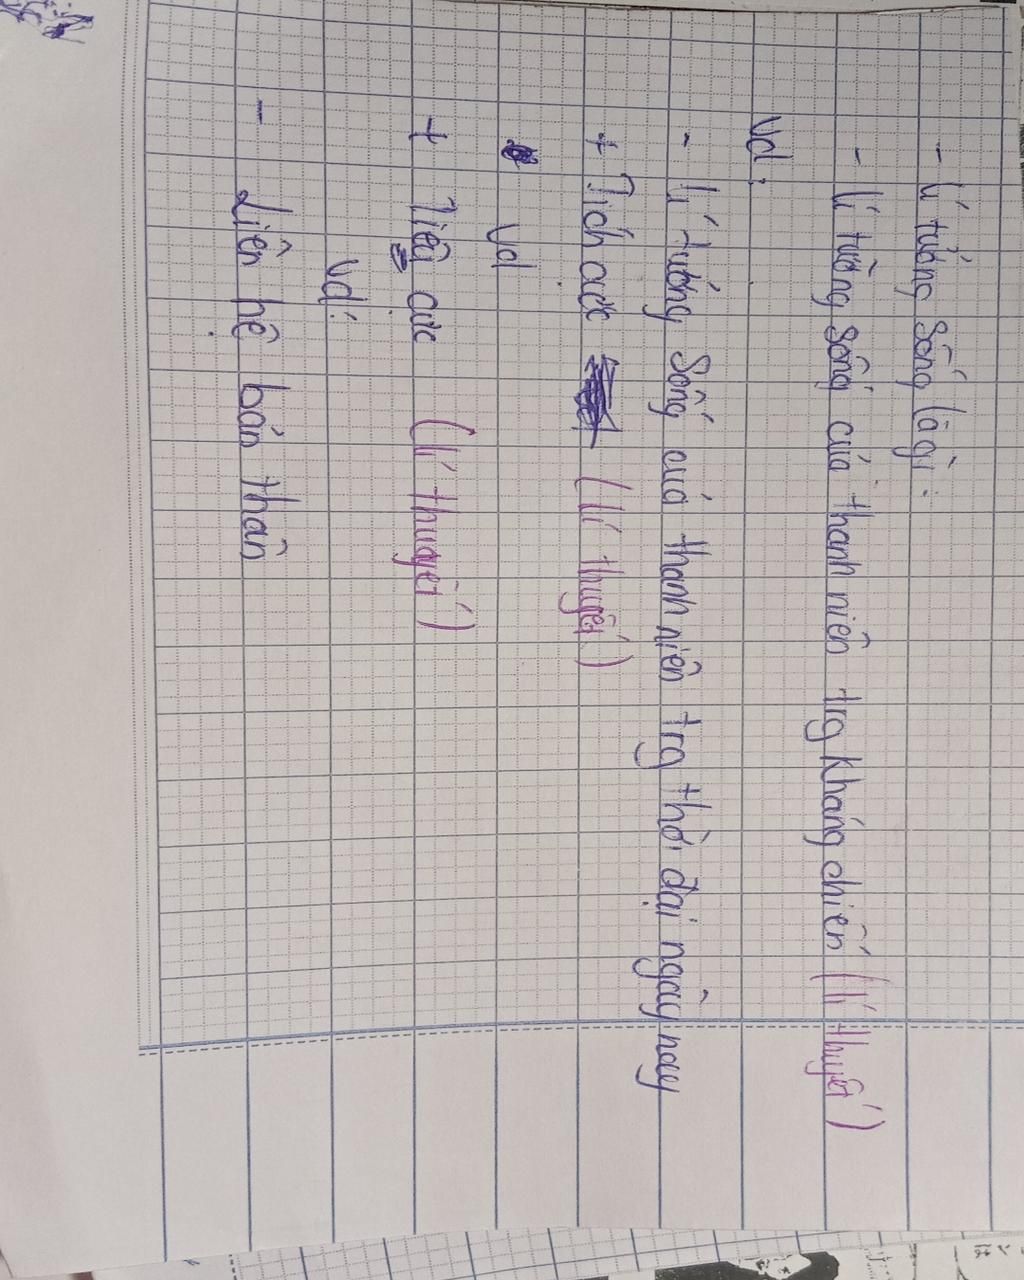 - Lí tưởng sống là gì:
- Lí tưởng sống của thanh niên trg kháng chiến (lí thuyết)
vd:
- Lí tưởng sống của thanh niên trg thời đại ngày nay
+ Tích cực (lí thuyết)
vd
+ Tiêu cực (lí thuyết)
vd:
- Liên hệ bản thân